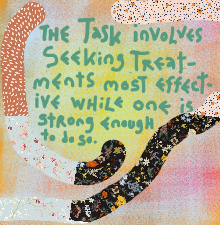 THE TASK INVOLVES
SEEKING TREAT-
MENTS MOST EFFECT-
IVE WHILE ONE IS
STRONG ENOUGH
TO DO SO.